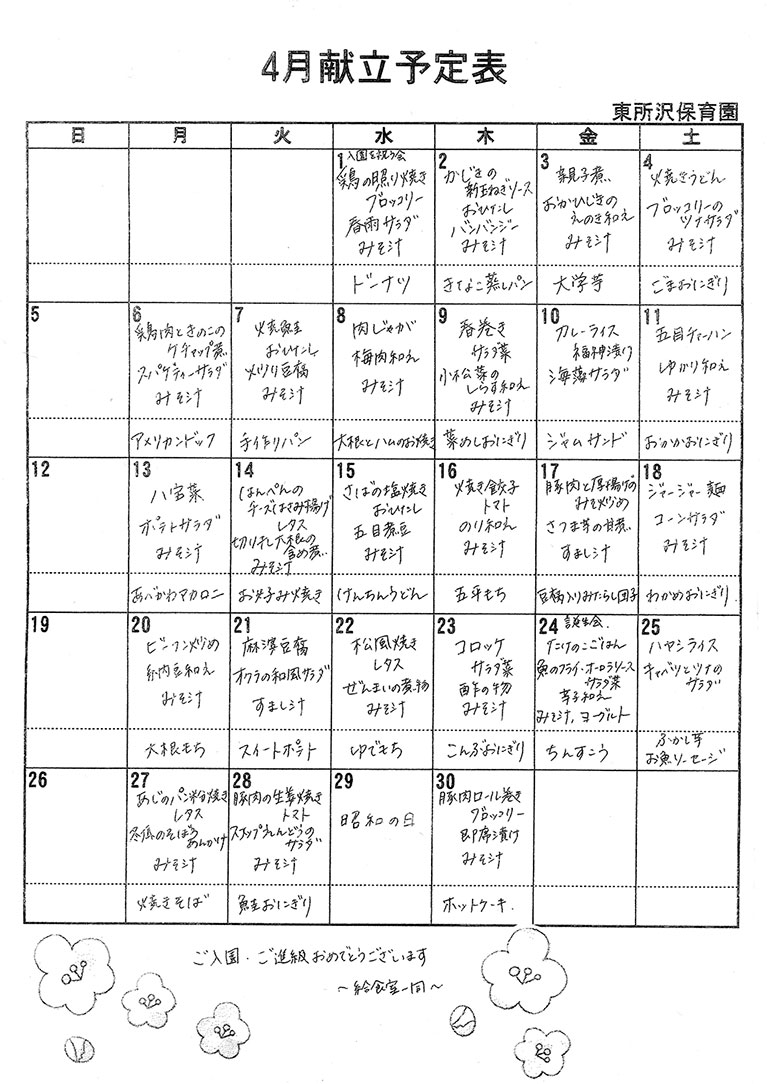 4月献立予定表
東所沢保育園
日 月 火 水 木 金 土
1 入園を祝う会
鶏の照り焼き
ブロッコリー
春雨サラダ
みそ汁
ドーナツ
2
かじきの
新玉ねぎソース
おひたし
バンバンジー
みそ汁
きなこ蒸しパン
3
親子煮
おかひじきの
えのき和え
みそ汁
大学芋
4
焼きうどん
ブロッコリーの
ツナサラダ
みそ汁
ごまおにぎり
5
6
鶏肉ときのこの
ケチャップ煮
スパゲティーサラダ
みそ汁
アメリカンドック
7
焼鮭
おひたし
炒り豆腐
みそ汁
手作りパン
8
肉じゃが
梅肉和え
みそ汁
大根とハムのお焼き
9
春巻き
サラダ菜
小松菜の
しらす和え
みそ汁
菜めしおにぎり
10
カレーライス
福神漬け
海藻サラダ
ジャムサンド
11
五目チャーハン
ゆかり和え
みそ汁
おかかおにぎり
12
13
八宝菜
ポテトサラダ
みそ汁
あべかわマカロニ
14
はんぺんの
チーズはさみ揚げ
レタス
切り干し大根の
含め煮
みそ汁
お好み焼き
15
さばの塩焼き
おひたし
五目煮豆
みそ汁
けんちんうどん
16
焼き餃子
トマト
のり和え
みそ汁
五平もち
17
豚肉と厚揚げの
みそ炒め
さつま芋の甘煮
すまし汁
豆腐入りみたらし団子
18
ジャージャー麺
コーンサラダ
みそ汁
わかめおにぎり
19
20
ビーフン炒め
納豆和え
みそ汁
大根もち
21
麻婆豆腐
オクラの和風サラダ
すまし汁
スイートポテト
22
松風焼き
レタス
ぜんまいの煮物
みそ汁
ゆでもち
23
コロッケ
サラダ菜
酢の物
みそ汁
こんぶおにぎり
24 誕生会
たけのこごはん
魚のフライ・オーロラソース
サラダ菜
芋子和え
みそ汁、ヨーグルト
ちんすこう
25
ハヤシライス
キャベツとツナの
サラダ
ふかし芋
お魚ソーセージ
26
27
あじのパン粉焼き
レタス
みそ汁
焼きそば
28
豚肉の生姜焼き
トマト
スナップえんどうの
サラダ
みそ汁
鮭おにぎり
29
昭和の日
30
豚肉ロール巻き
ブロッコリー
即席漬け
みそ汁
ホットケーキ
ご入園・ご進級おめでとうございます
～給食室一同～